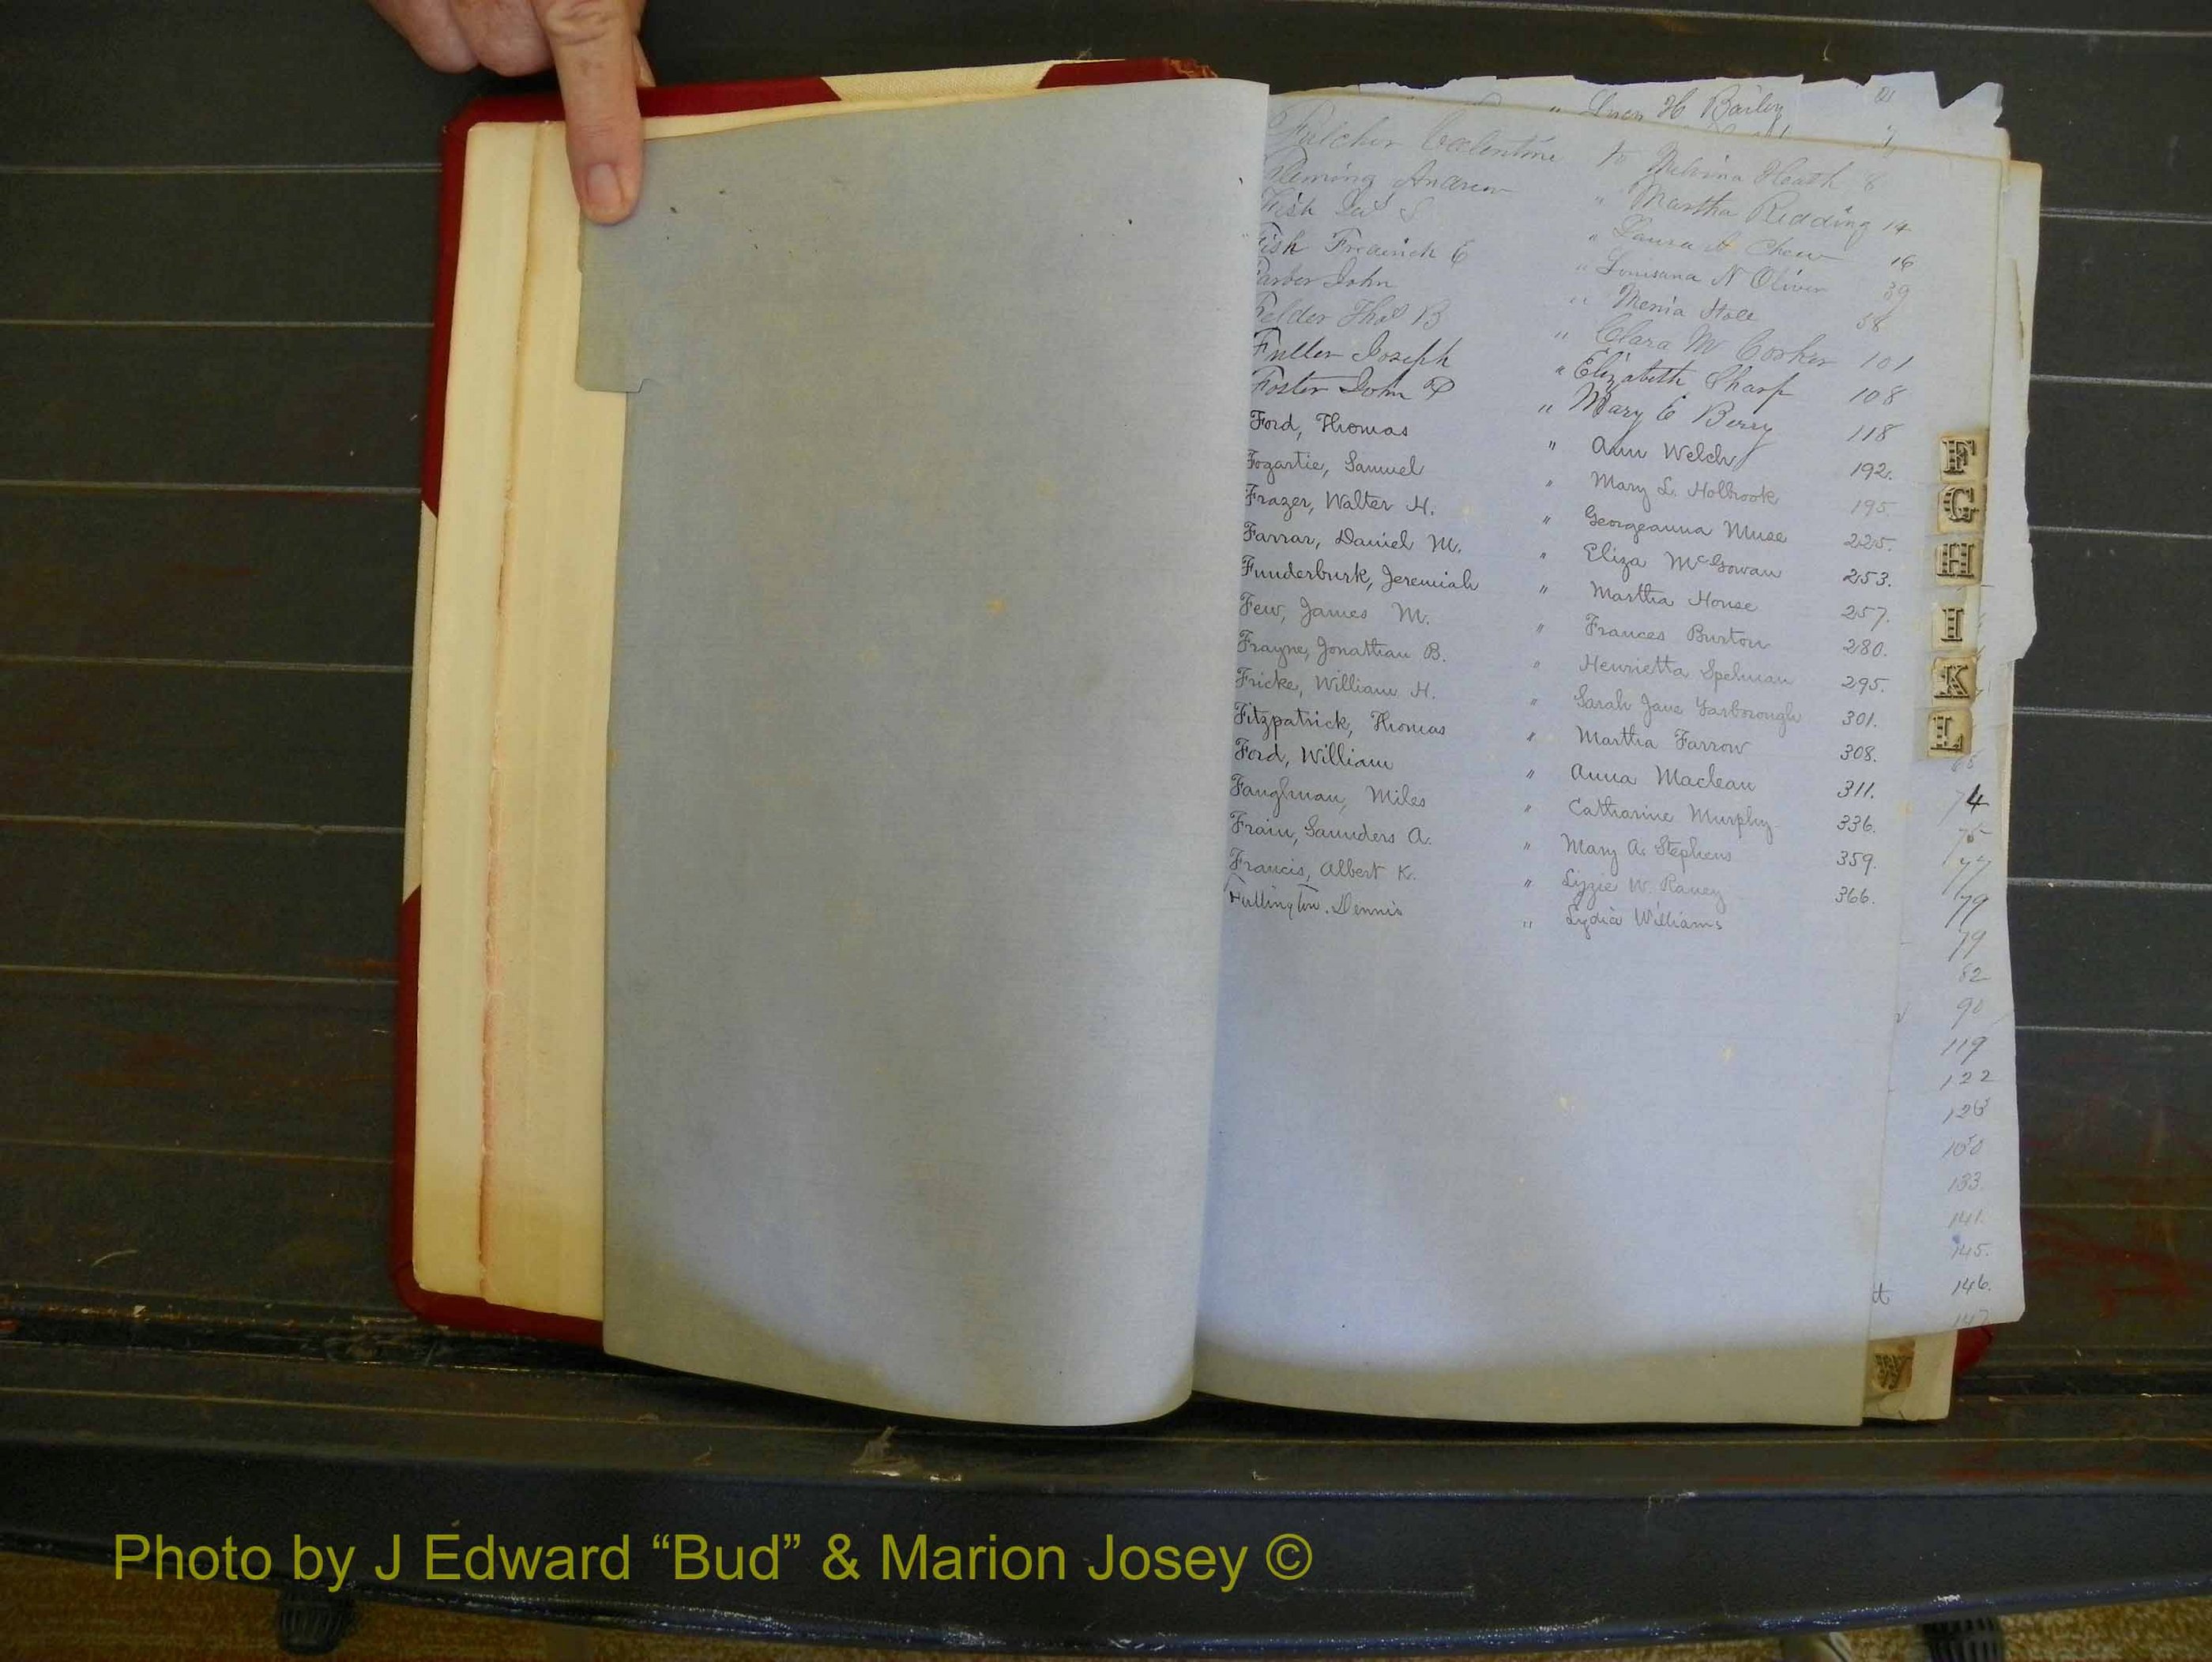 " H Bailey
Fulcher Valentine to Melvina Heath 8
Fleming Andrew " Martha Redding 14
Fish S " Laura A Chew 16
Fish Frederick E " Louisana N Oliver 39
Farber John " 58
Felder Thos B " Clara M Corker 101
Fuller Joseph " Elizabeth Sharp 108
Foster John P " Mary E Berry 118
Ford, Thomas " Ann Welch 192.
Fogartie, Samuel " Mary L. Holbrook 195
Frazer, Walter H. " Georgeanna Muse 225.
Farrar, Daniel M. " Eliza McGowan 253.
Funderburk, Jeremiah " Martha House 257.
Few, James M. " Frances Burton 280.
Frayne, Jonathan B. " Henrietta Spelman 295.
Fricke, William H. " Sarah Jane Yarborough 301.
Fitzpatrick, Thomas " Martha Farrow 308.
Ford, William " Anna Maclean 311.
Faughnan, Miles " Catharine Murphy 336.
Frain, Saunders A. " Mary A. Stephens 359.
Francis, Albert K. " Lizzie W. Raney 366.
Fullington. Dennis " Lydia Williams
F
G
H
I
K
L
74
75
77
79
79
82
90
119
122
126
130
133.
141.
145.
tt 146.
147
Photo by J Edward “Bud” & Marion Josey ©